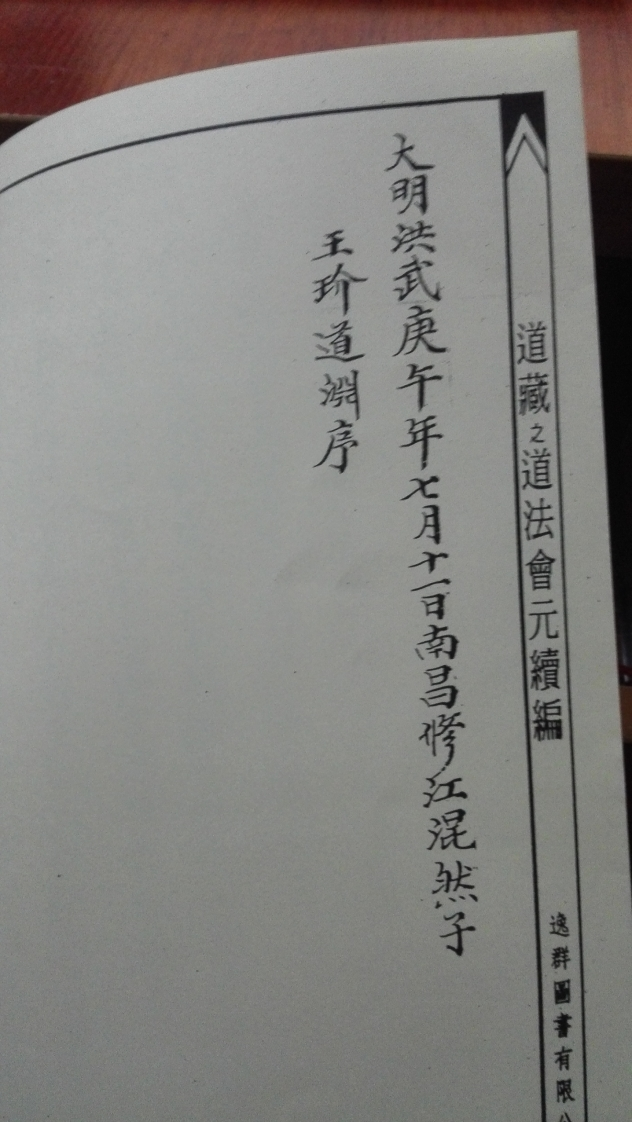 道藏之道法會元續編
逸群圖書有限公
大明洪武庚午年七月十一日南昌修江混然子
王玠道淵序